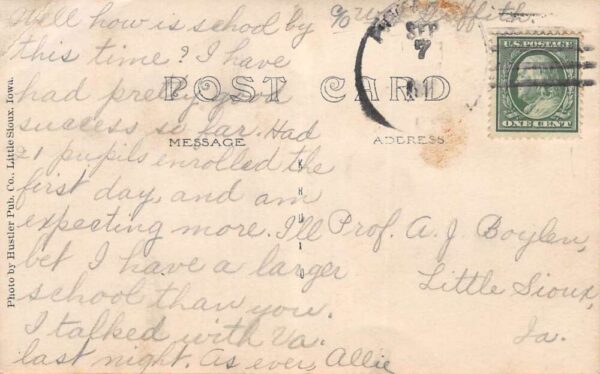 Well how is school by
this time? I have
had pretty good
success so far. Had
21 pupils enrolled the
first day, and am
expecting more. I'll
bet I have a larger
school than you.
I talked with Va.
last night. As ever, Allie
POST CARD
MESSAGE
ADDRESS
KRUXO
Photo by Hustler Pub. Co., Little Sioux, Iowa.
SEP
7
U.S. POSTAGE
ONE CENT
Prof. A. J. Boylen,
Little Sioux,
Ia.